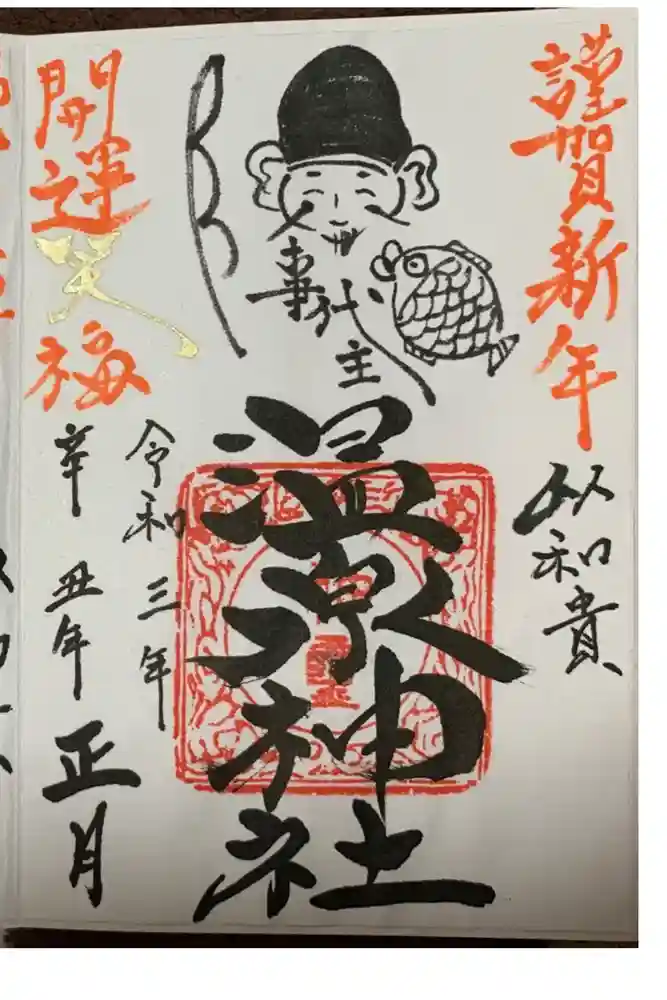 謹賀新年
以和貴
事代主
温泉神社
令和三年
開運笑福
辛丑年正月